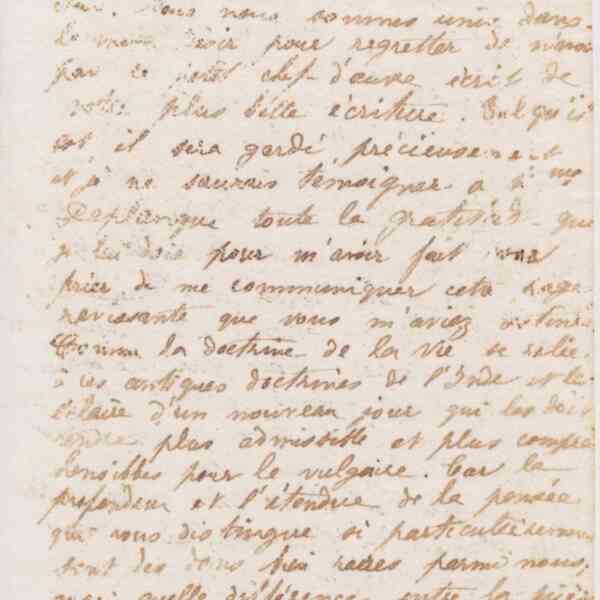 nous nous sommes unis dans
le pour regretter de n'avoir
par ce petit chef-d'œuvre écrit de
votre plus belle écriture. Tel qu'il
est il sera gardé précieusement
et je ne saurais témoigner à Mme
toute la que
je lui dois pour m'avoir fait
prier de me communiquer cette page
ravissante que vous m'aviez
Comme la doctrine de la Vie se relie
à ces antiques doctrines de l'Inde et le
l'éclaire d'un nouveau jour qui les doit
rendre plus admissible et plus compré
hensibles pour le vulgaire. Car la
profondeur et l'étendue de la pensée
qui vous distingue si particulièrement
sont des dons bien rares parmi nous,
mais quelle différence entre la